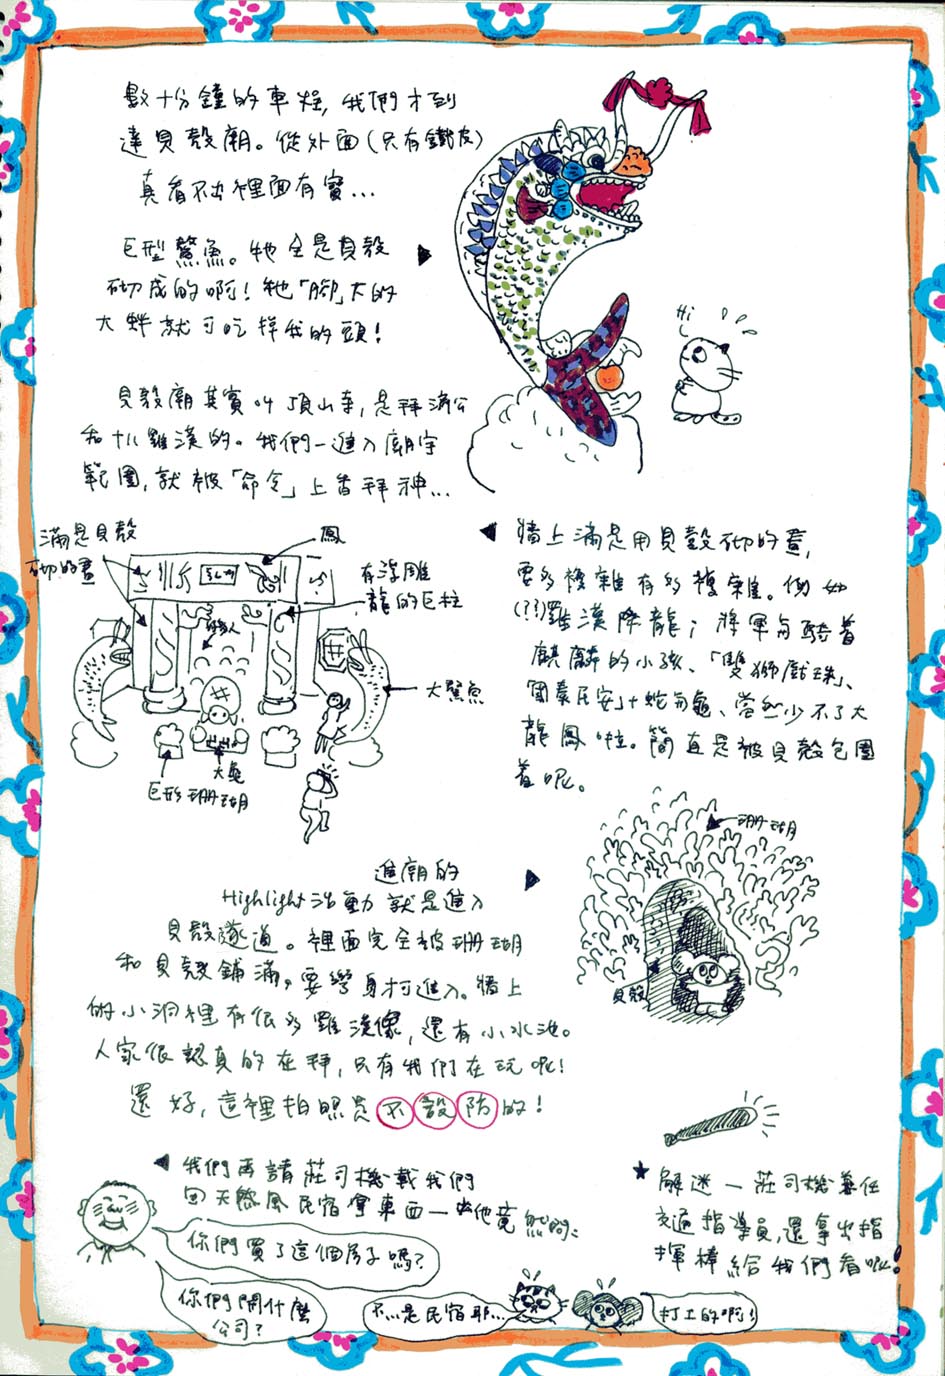 數十分鐘的車程，我們才到
達貝殼廟。從外面(只有鐵皮)
真看不出裡面有寶...
巨型鰲魚。牠全是貝殼
砌成的啊！牠「腳」下的
大蚌就可吃掉我的頭！
Hi
貝殼廟其實叫頂山寺，是拜濟公
和十八羅漢的。我們一進入廟宇
範圍，就被「命令」上香拜神...
滿是貝殼
砌的畫
鳳
有浮雕
龍的巨柱
大鰲魚
大龜
巨形珊瑚
牆上滿是用貝殼砌的畫，
要多複雜有多複雜。例如
(??)羅漢降龍；將軍與騎着
麒麟的小孩、「雙獅戲珠」、
「國泰民安」+蛇與龜、當然少不了大
龍鳳啦。簡直是被貝殼包圍
着呢。
珊瑚
貝殼
進廟的
Highlight活動就是進入
貝殼隧道。裡面完全被珊瑚
和貝殼鋪滿，要彎身才可進入。牆上
的小洞裡有很多羅漢像，還有小水池。
人家很認真的在拜，只有我們在玩呢！
還好，這裡拍照是不設防的！
我們再請莊司機載我們
回天然風民宿拿東西—
你們買了這個房子嗎？
你們開什麼
公司？
不...是民宿耶...
打工的啊！
★解迷—莊司機兼任
交通指導員，還拿出指
揮棒給我們看呢！